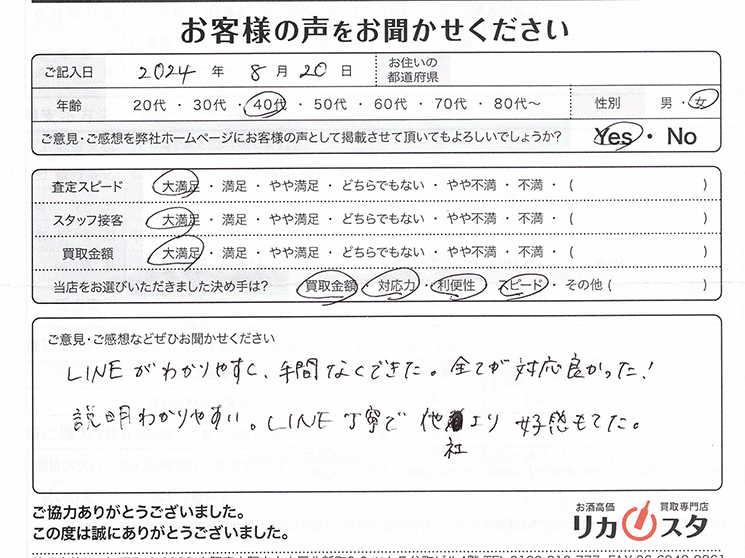 お客様の声をお聞かせください
ご記入日 2024 年 8 月 20 日 お住いの都道府県
年齢 20代 ・ 30代 ・ 40代 ・ 50代 ・ 60代 ・ 70代 ・ 80代～ 性別 男 ・ 女
ご意見・ご感想を弊社ホームページにお客様の声として掲載させて頂いてもよろしいでしょうか? Yes ・ No
査定スピード 大満足 ・ 満足 ・ やや満足 ・ どちらでもない ・ やや不満 ・ 不満 ・ ( )
スタッフ接客 大満足 ・ 満足 ・ やや満足 ・ どちらでもない ・ やや不満 ・ 不満 ・ ( )
買取金額 大満足 ・ 満足 ・ やや満足 ・ どちらでもない ・ やや不満 ・ 不満 ・ ( )
当店をお選びいただきました決め手は? 買取金額 ・ 対応力 ・ 利便性 ・ スピード ・ その他 ( )
ご意見・ご感想などぜひお聞かせください
LINEがわかりやすく、手間なくできた。全てが対応良かった!
説明わかりやすい。LINE丁寧で他社より好感もてた。
ご協力ありがとうございました。
この度は誠にありがとうございました。
お酒高価 買取専門店
リカスタ